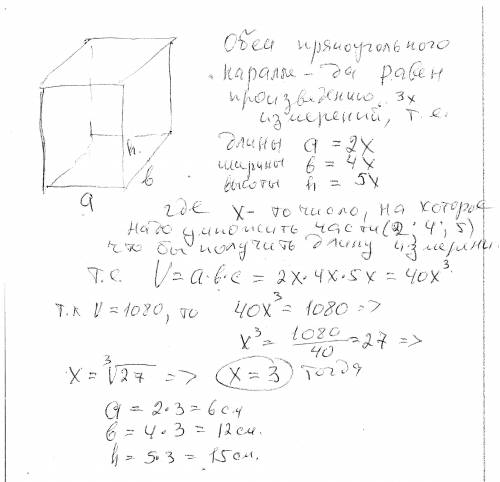 Обем прямоугольного
паралле-да равен
произведению 3х
измерений, т.е.
длины a = 2x
ширины b = 4x
высоты h = 5x
где x - то число, на которое
надо умножить части (2; 4; 5)
что бы получить длину измерени
т.е. V = a·b·c = 2x·4x·5x = 40x³
т.к V = 1080, то 40x³ = 1080 =>
x³ = 1080/40 = 27 =>
x = ³√27 => x = 3 тогда
a = 2·3 = 6 см
b = 4·3 = 12 см.
h = 5·3 = 15 см.
h
b
a